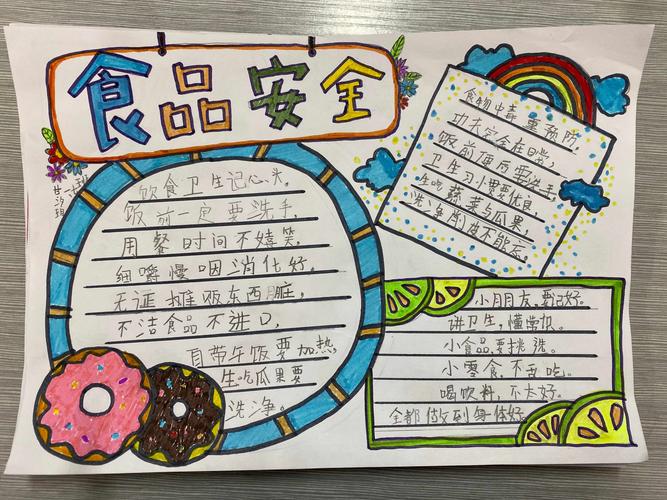 食品安全
饮食卫生记心头。
饭前一定要洗手,
用餐时间不嬉笑。
细嚼慢咽消化好。
无证摊贩东西脏,
不洁食品不进口,
自带午饭要加热,
生吃瓜果要
洗净。
食物中毒重预防。
功夫完全在日常。
饭前便后要洗手。
卫生习惯要优良。
生吃蔬菜与瓜果,
洗净削皮不能忘。
小朋友,要记好。
讲卫生,懂常识。
小食品要挑选。
小零食,不乱吃。
喝饮料,不太好。
全都做到身体好。